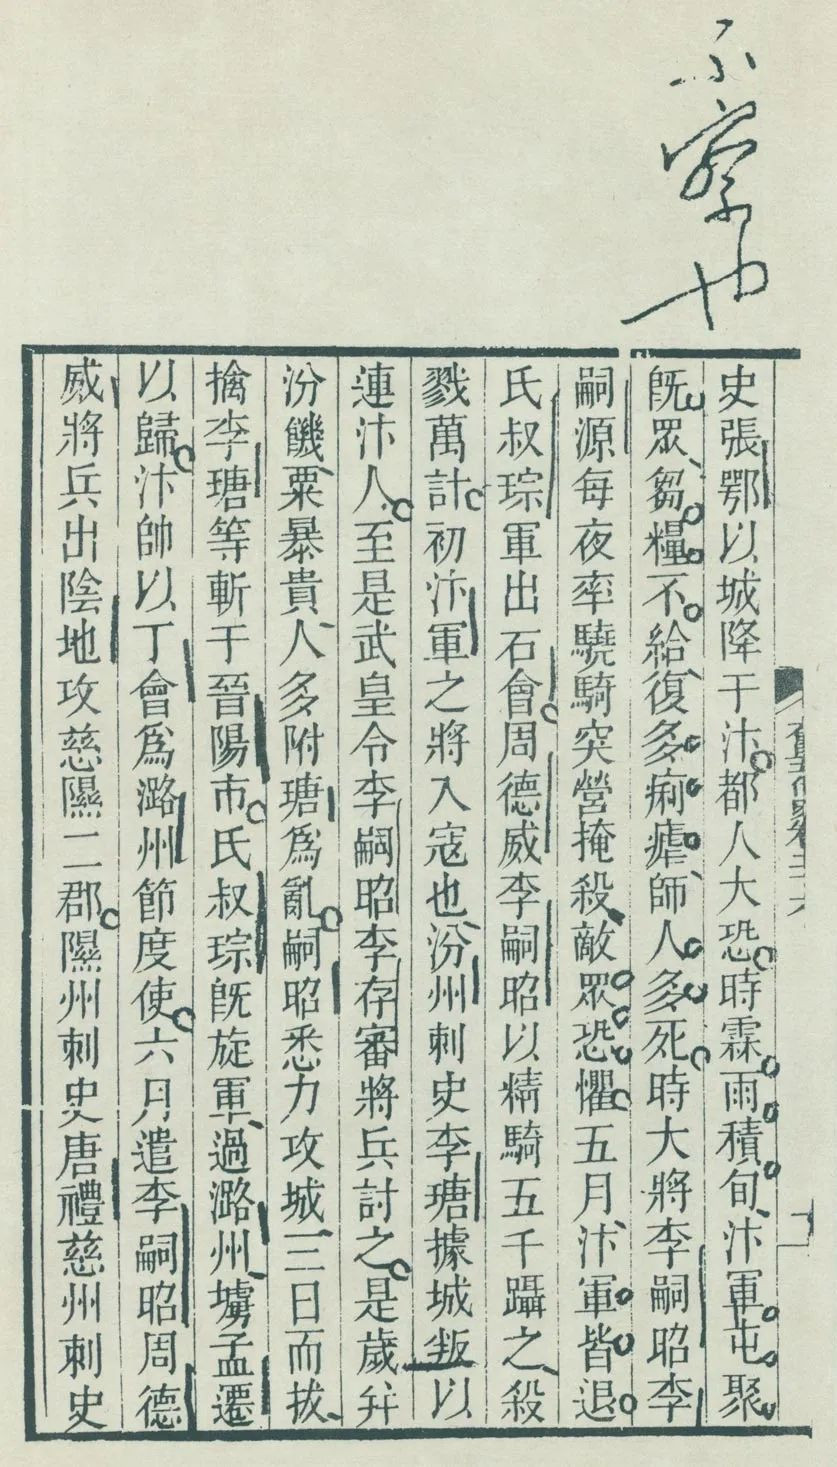 不察也
史張鄂以城降于汴都人大恐時霖雨積旬汴軍屯聚
旣眾芻糧不給復多痢瘧師人多死時大將李嗣昭李
嗣源每夜率驍騎突營掩殺敵眾恐懼五月汴軍皆退
氏叔琮軍出石會周德威李嗣昭以精騎五千躡之殺
戮萬計初汴軍之將入寇也汾州刺史李瑭據城叛以
連汴人至是武皇令李嗣昭李存審將兵討之是歲幷
汾饑粟暴貴人多附瑭爲亂嗣昭悉力攻城三日而拔
擒李瑭等斬于晉陽市氏叔琮旣旋軍過潞州擄孟遷
以歸汴帥以丁會爲潞州節度使六月遣李嗣昭周德
威將兵出陰地攻慈隰二郡隰州刺史唐禮慈州刺史